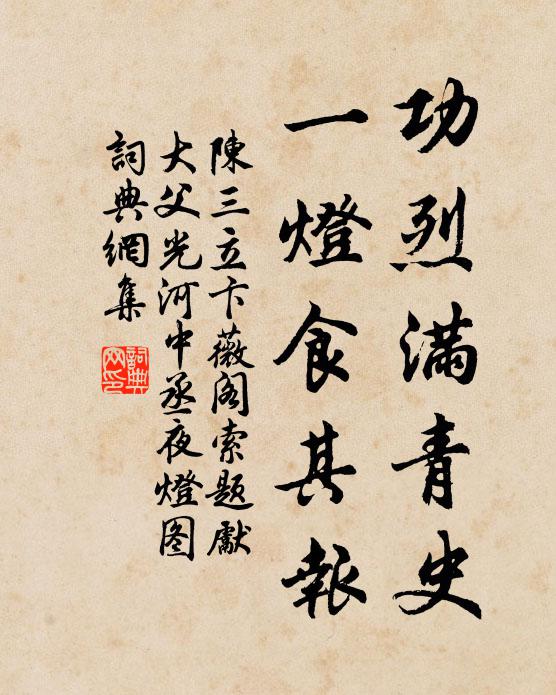 功烈滿青史
一燈食其報
陳三立卞薇阁索题獻
大父光河中丞夜燈图
詞典網集
詞典网印